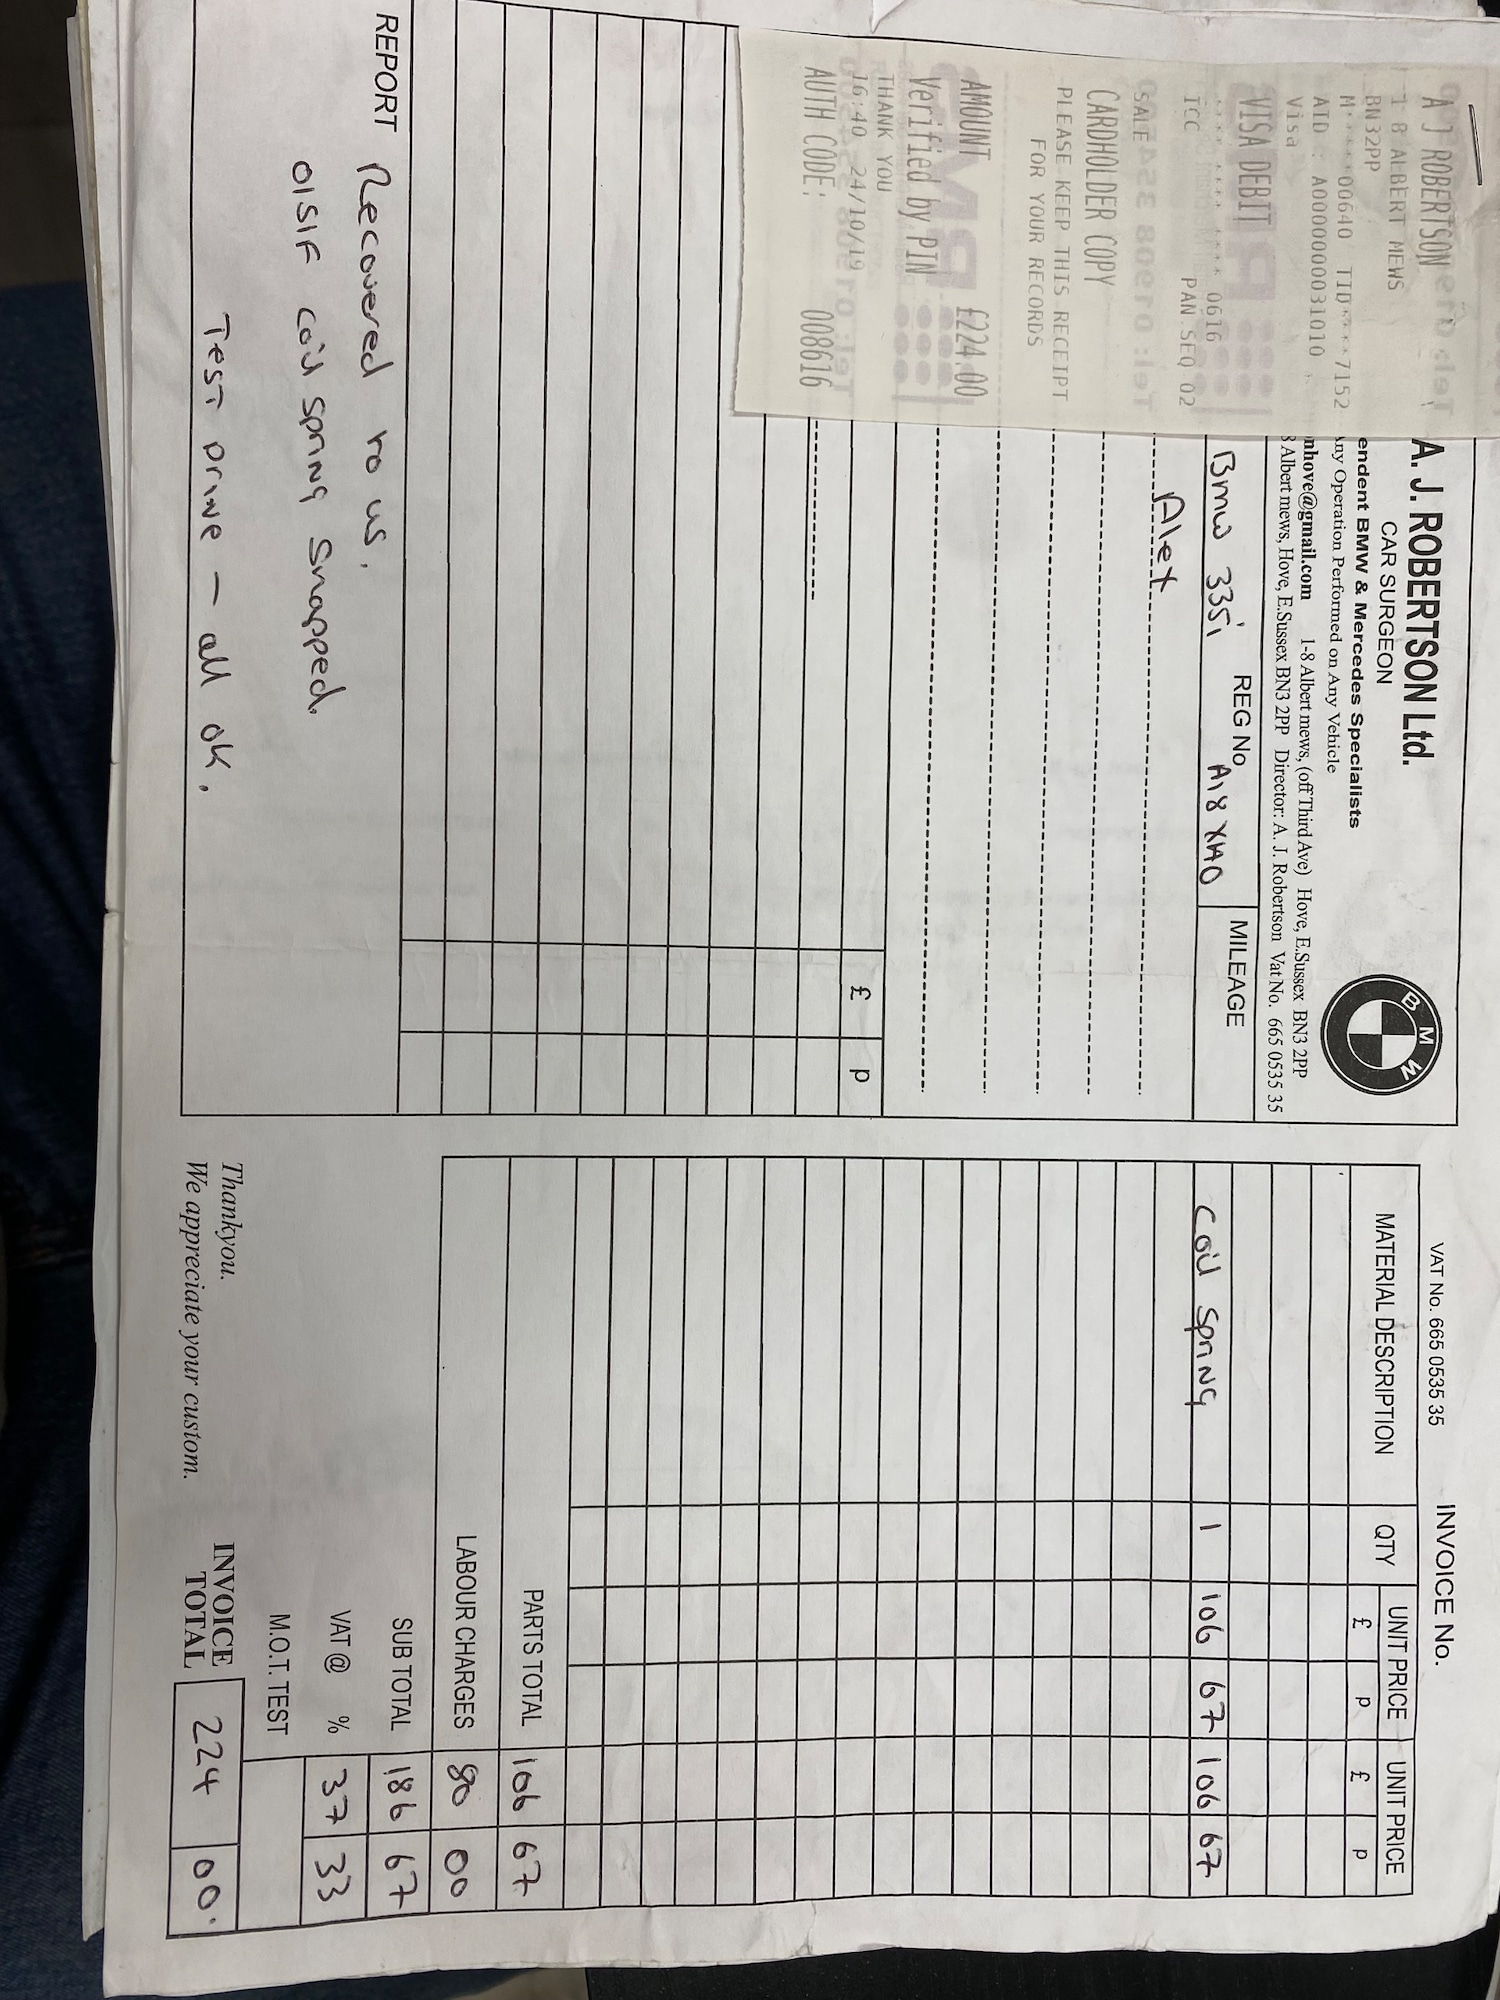 A J ROBERTSON
1 8 ALBERT MEWS
BN32PP
M*****00640 TID****7152
AID : A0000000031010
Visa
VISA DEBIT
**** **** **** 0616
ICC PAN SEQ 02
SALE
CARDHOLDER COPY
PLEASE KEEP THIS RECEIPT
FOR YOUR RECORDS
AMOUNT £224.00
Verified by PIN
THANK YOU
16:40 24/10/19
AUTH CODE: 008616
A. J. ROBERTSON Ltd.
CAR SURGEON
endent BMW & Mercedes Specialists
ny Operation Performed on Any Vehicle
nhove@gmail.com 1-8 Albert mews, (off Third Ave) Hove, E.Sussex BN3 2PP
8 Albert mews, Hove, E.Sussex BN3 2PP Director: A. J. Robertson Vat No. 665 0535 35
BMW
Bmw 335i REG No. A18 XAO MILEAGE
Alex
£ p
REPORT Recovered to us.
O/S/F coil spring snapped.
Test drive – all ok.
VAT No. 665 0535 35 INVOICE No.
MATERIAL DESCRIPTION QTY UNIT PRICE UNIT PRICE
£ p £ p
coil spring 1 106 67 106 67
PARTS TOTAL 106 67
LABOUR CHARGES 80 00
SUB TOTAL 186 67
VAT @ % 37 33
M.O.T. TEST
Thankyou.
We appreciate your custom.
INVOICE
TOTAL 224 00.